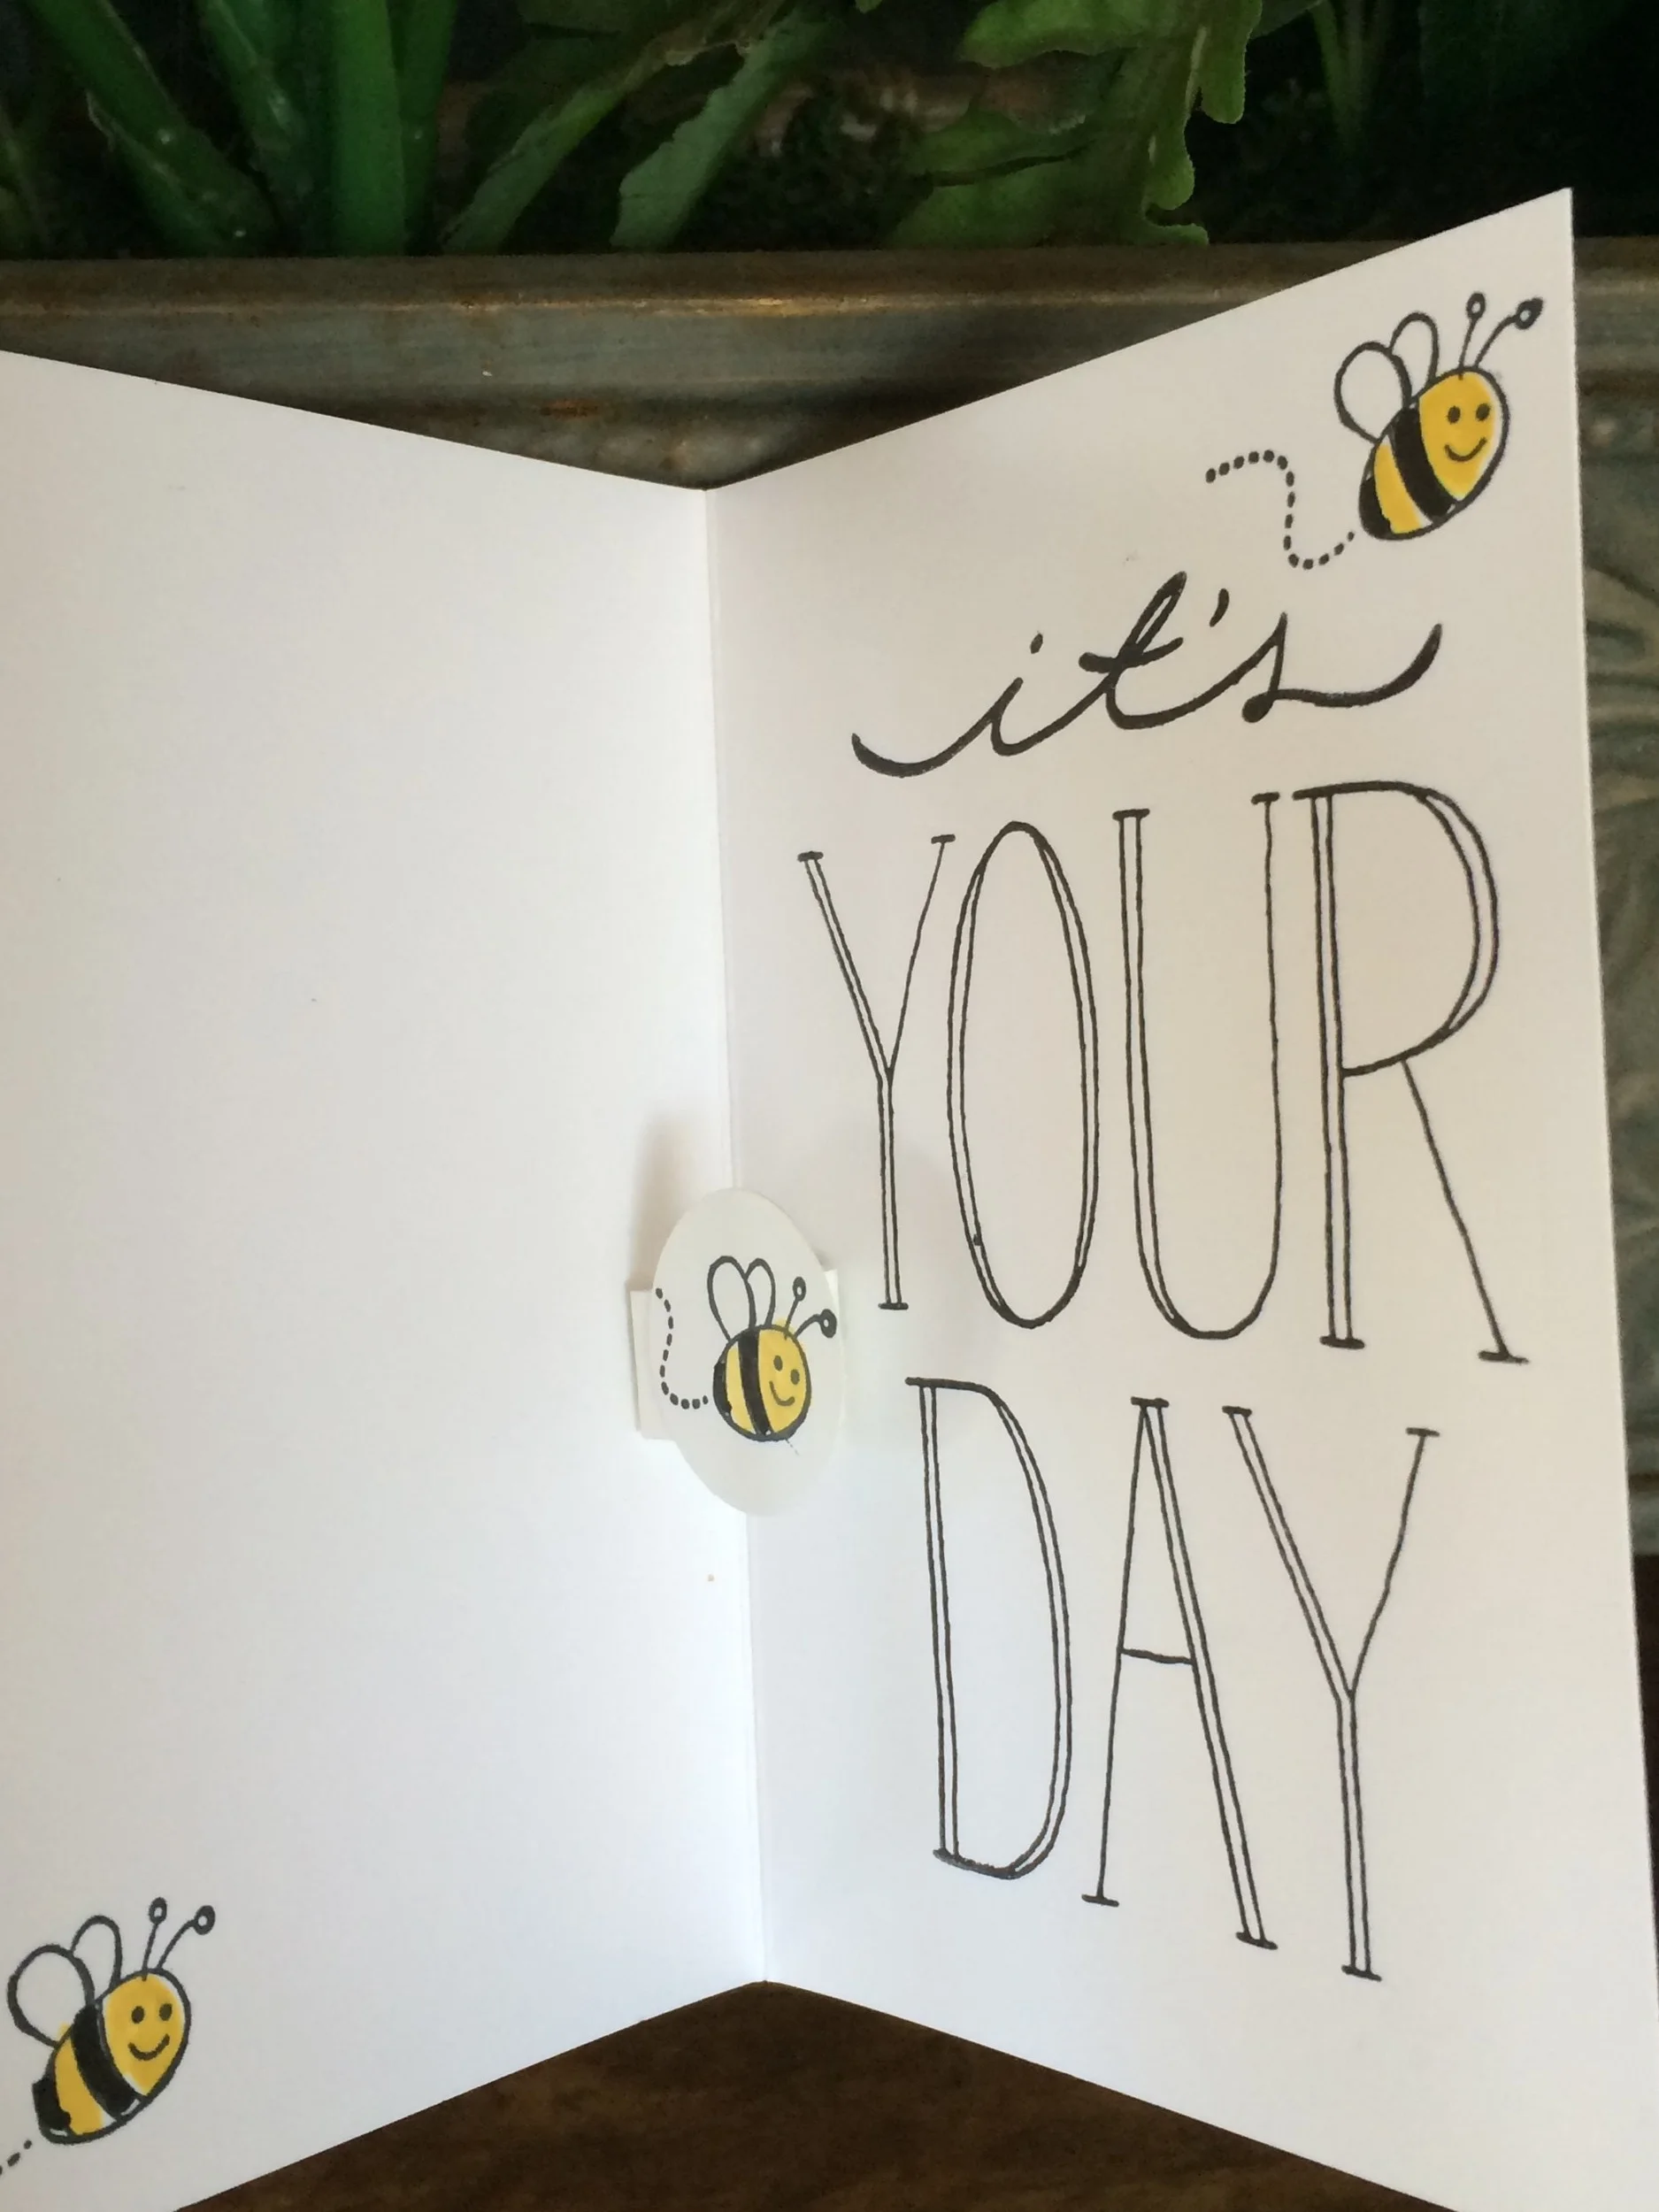 it's
YOUR
DAY